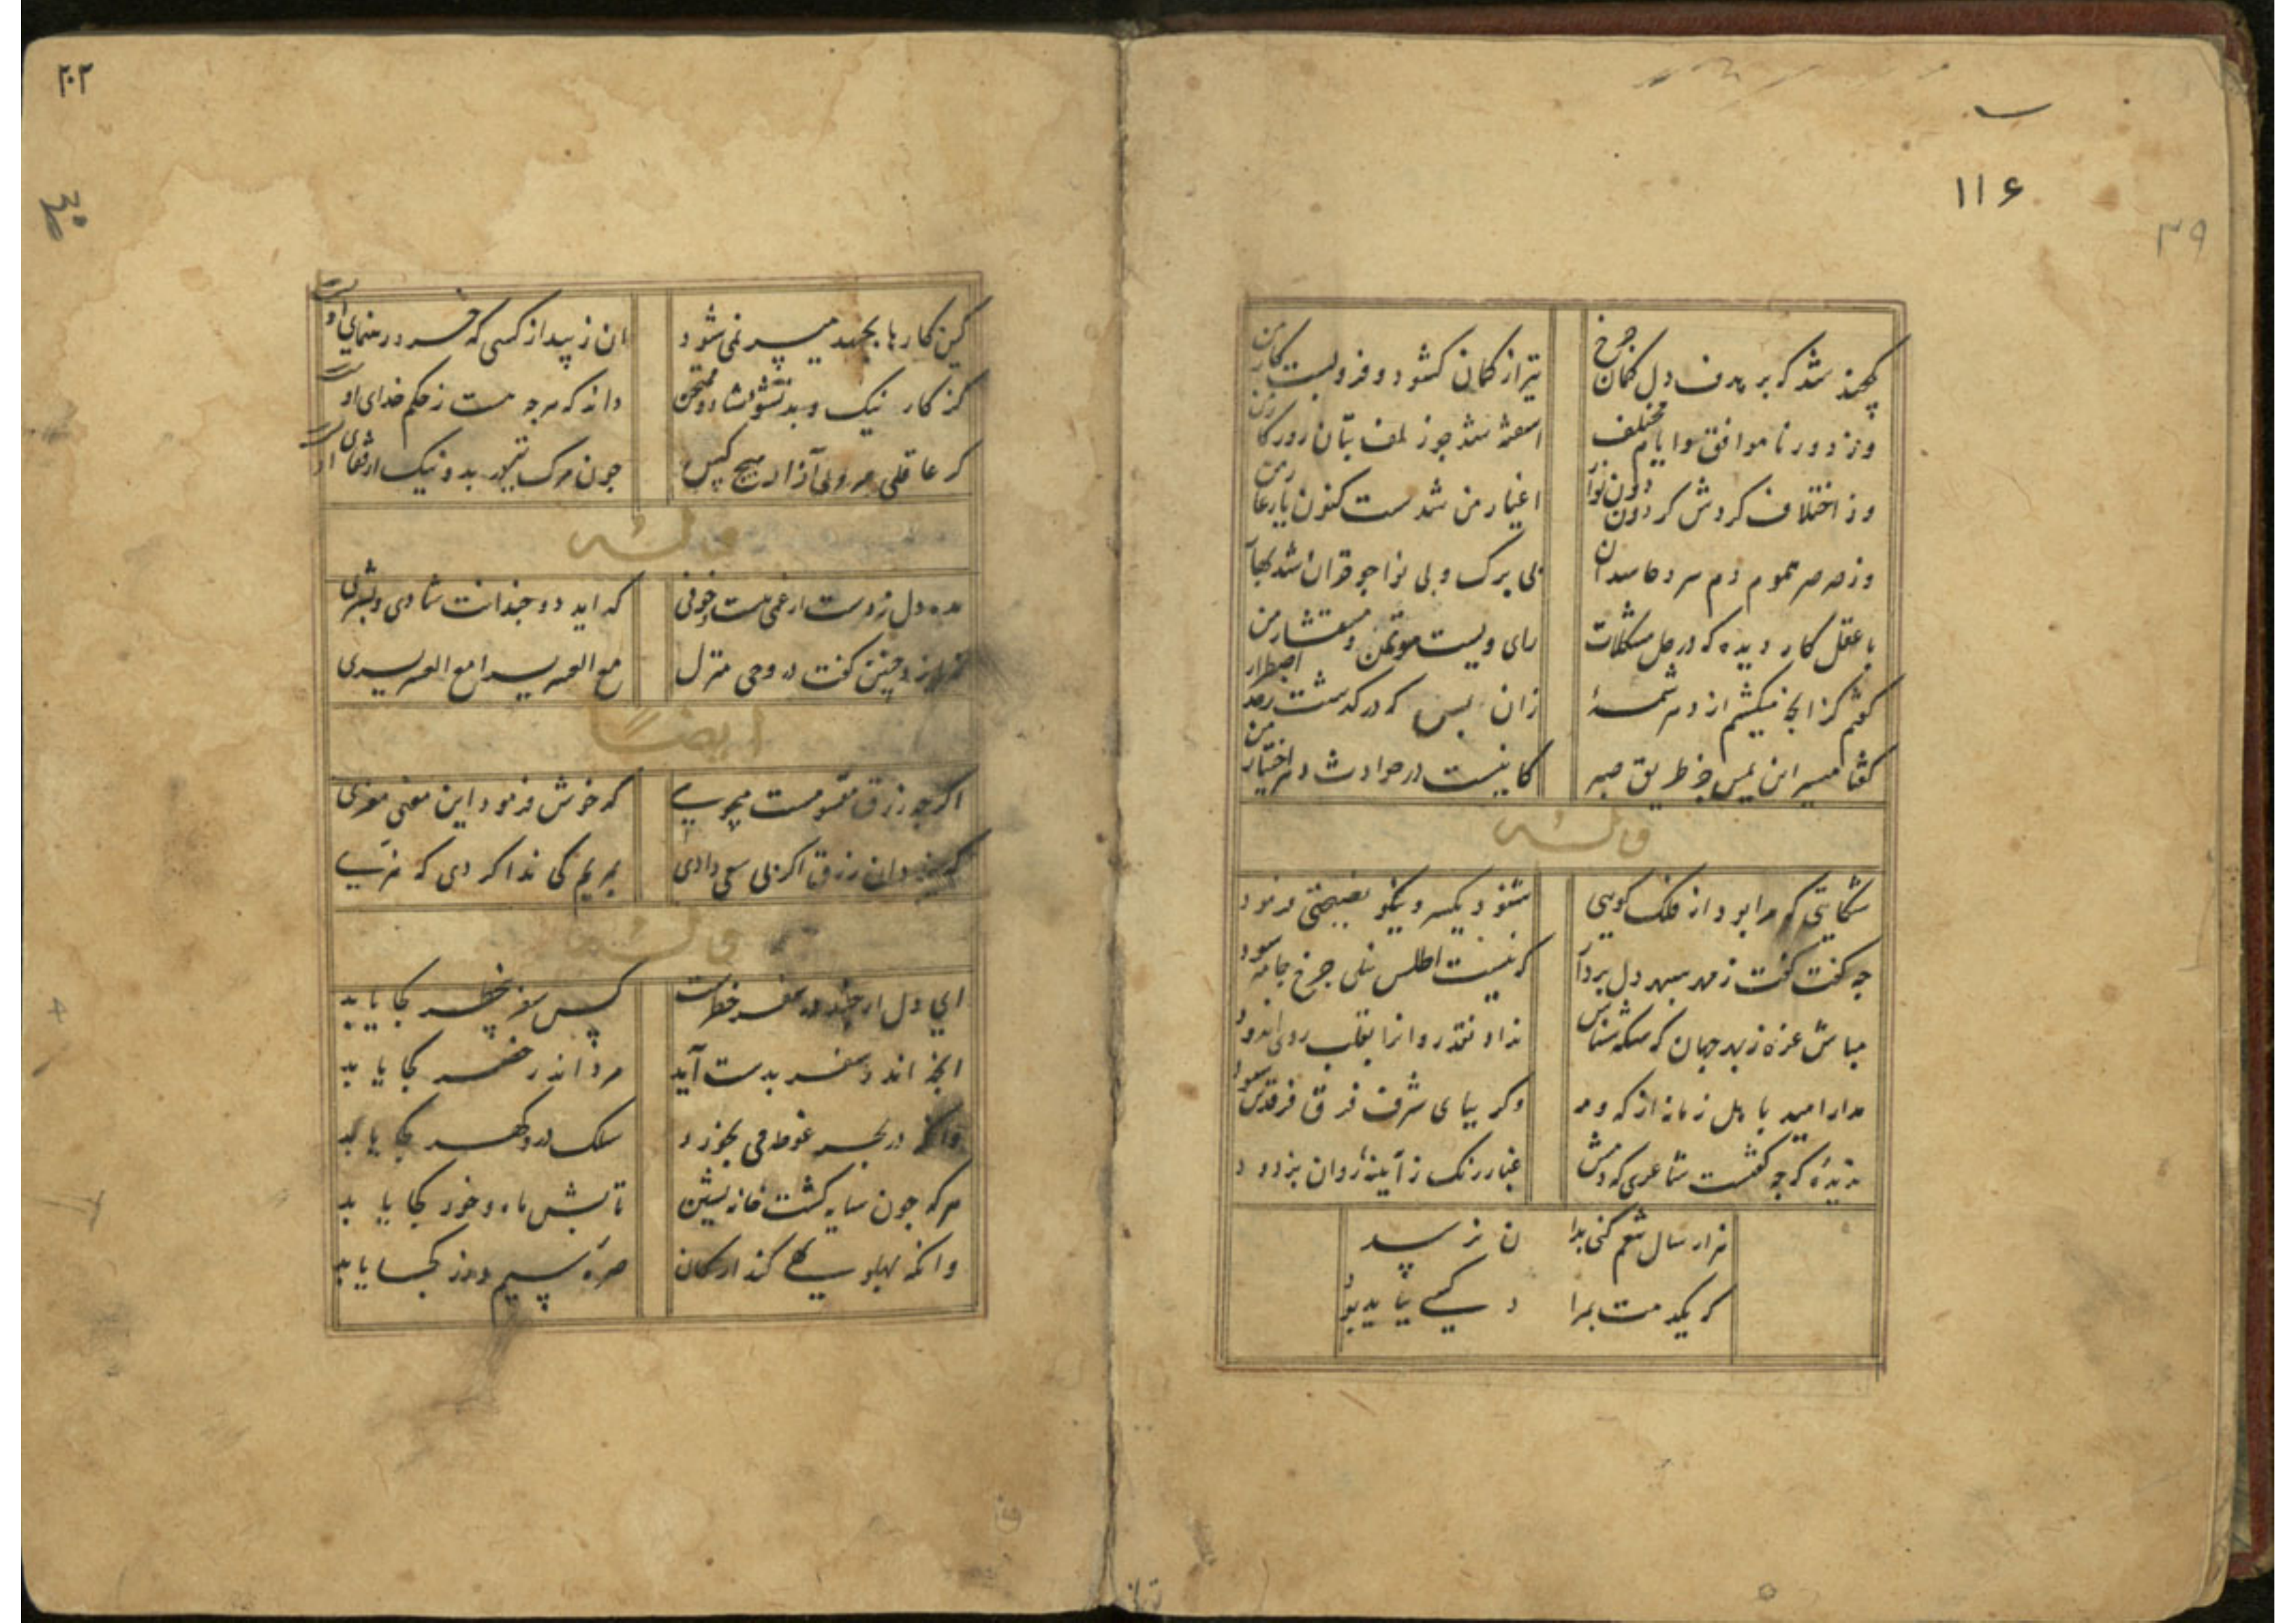 ۱۱۶
۳۹
چند شد که بر هدف دل کمان چرخ
تیر از کمان کشود و فرو بست کار من
وز دور ناموافق و ایام مختلف
اشفته شد جو زلف بتان روزکار من
وز اختلاف کردش کردون دون نواز
اغیار من شدست کنون یار غار من
وز صرصر سموم دم سرد حاسدان
بی برک و بی نوا جو خزان شد بهار
با عقل کار دیده که در حل مشکلات
رای ویست موتمن و مستشار من
کفتم کز انج میکشم از دهر شمهٔ
زان بس که در کذشت زحد اضطرار من
کفتا میسر این لیس جز طریق صبر
کانیست در حوادث دهر اختیار
و له
شکایتی که مرا بود از فلک کویی
شنود یکسر و نیکو نصیحتی فرمود
چه کفت کفت ز مهر سبهر دل بردار
که نیست اطلس نیلی جرخ جامه سود
مباش غره ز بهر جهان که سکه شناس
نداد نقد روانرا بقلب روی اندود
مدار امید با هل زمانه از که و مه
وکر بپای شرف فرق فرقدش سود
ندیدهٔ که جه کفتست شاعری که دمش
غبار رنک ز آینهٔ روان بزدود
هزار سال تنعم کنی بدان نرسد
که یکدمت بمراد کسی نباید بود
۲۰۲
کین کارها بجهد میسر نمی شود
ان ز بید از کسی که خرد رهنمای اوست
کز کار نیک و بد نشود شاد و ممتحن
داند که هرجه هست ز حکم خدای اوست
کر عاقلی مرونی آزار هیج کس
جون مرک بد و نیک از قفای اوست
و له
مده دل ز دست ار غمی هست و خوفی
که اید دو چندانت شادی و بشری
چنین کفت در وحی منزل
مع العسر یسرا مع العسر یسری
ایضا
اکر جه رزق مقسومست میجوی
که خوش فرمود این معنی معزی
که یزدان رزق اکر بی سعی دادی
بمریم کی ندا کردی که هزی
و له
ای دل ار جند در سفر خطرست
کس سفر بی خطر کجا یابد
انج اندر سفر بدست آید
مرد اندر حضر کجا یابد
وانکه در بحر غوطه می نخورد
سلک در و کهر کجا یابد
هرکه جون سایه کشت خانه نشین
تابش ماه و خور کجا یابد
وانکه بهلو تهی کند از کان
صرهٔ سیم و زر کجا یابد